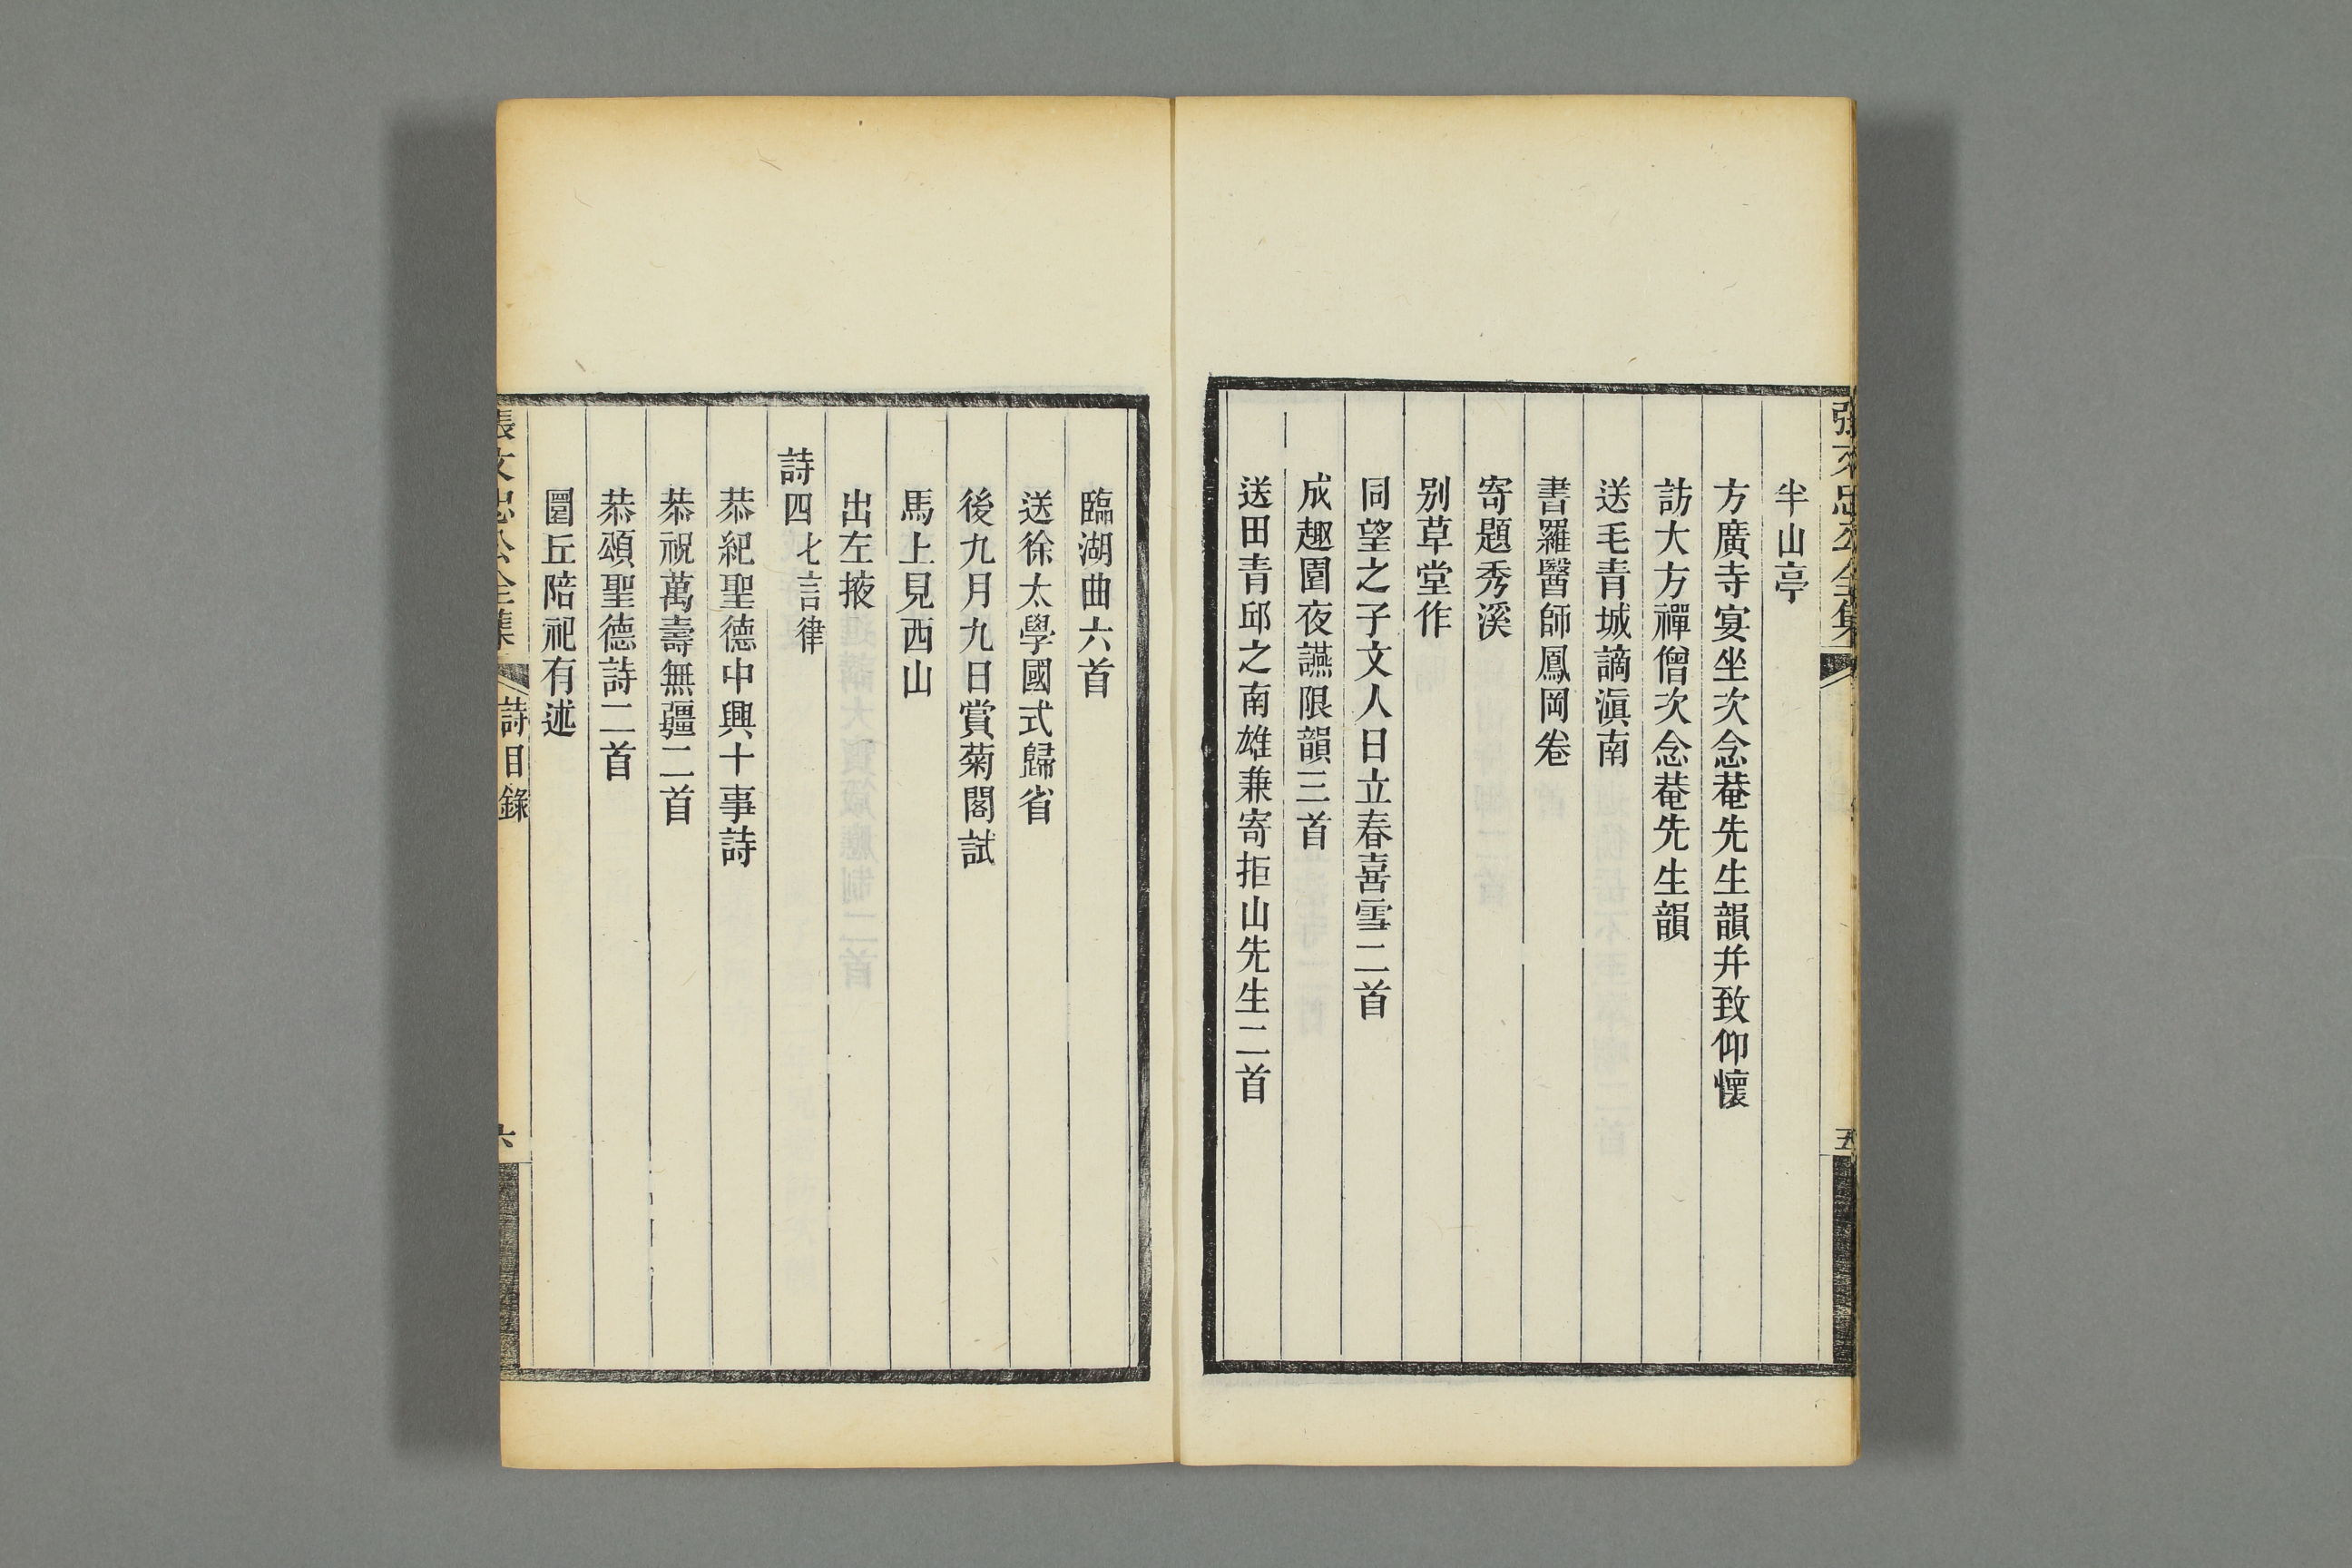 張文忠公全集
五
半山亭
方廣寺宴坐次念菴先生韻并致仰懷
訪大方禪僧次念菴先生韻
送毛青城謫滇南
書羅醫師鳳岡卷
寄題秀溪
别草堂作
同望之子文人日立春喜雪二首
成趣園夜讌限韻三首
送田青邱之南雄兼寄拒山先生二首
臨湖曲六首
送徐太學國式歸省
後九月九日賞菊閣試
馬上見西山
出左掖
詩四 七言律
恭紀聖德中興十事詩
恭祝萬壽無疆二首
恭頌聖德詩二首
圜丘陪祀有述
張文忠公全集
詩目錄
六